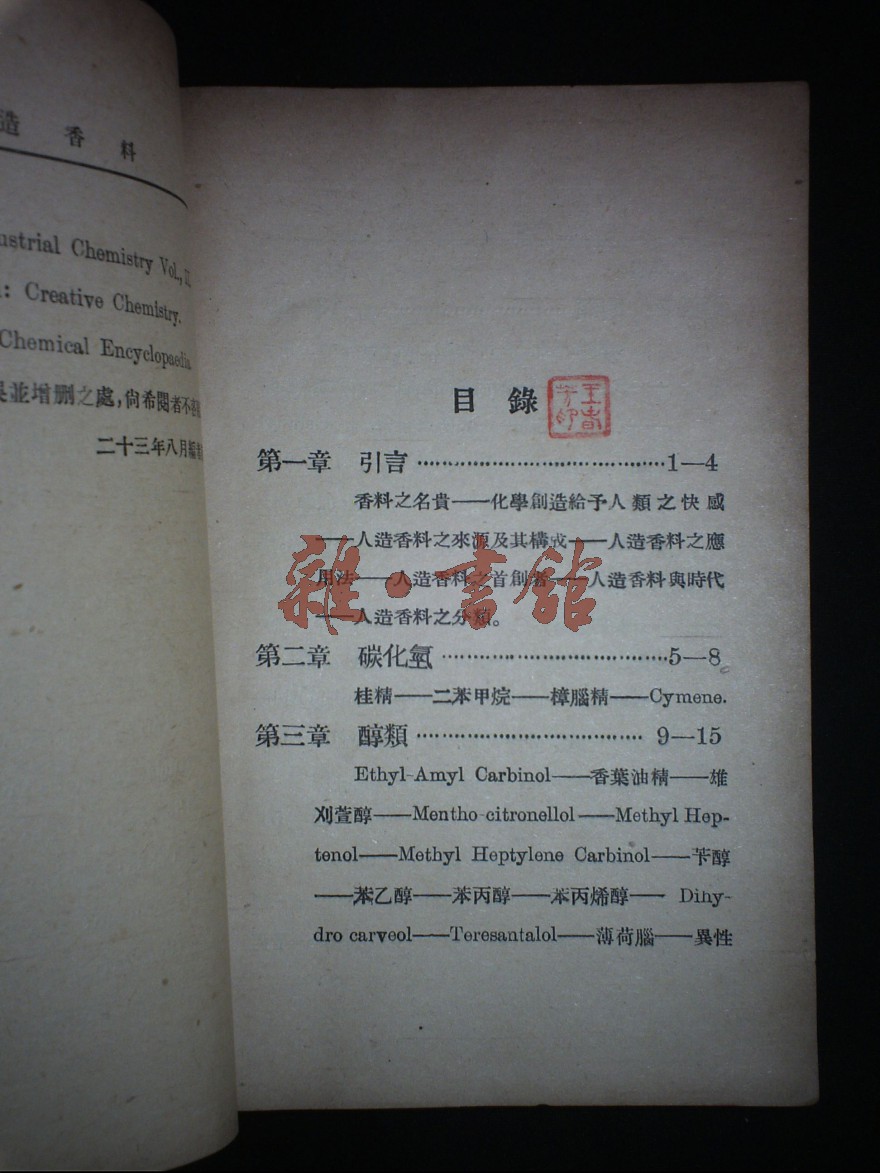 造香料
ustrial Chemistry Vol., II
: Creative Chemistry.
Chemical Encyclopaedia
並增删之處，尙希閱者不吝
二十三年八月編者
目錄
第一章 引言 ········································1—4
香料之名貴——化學創造給予人類之快感
——人造香料之來源及其構成——人造香料之應
用法——人造香料之首創者——人造香料與時代
——人造香料之分類。
第二章 碳化氫 ····································5—8
桂精——二苯甲烷——樟腦精——Cymene.
第三章 醇類 ···································· 9—15
Ethyl-Amyl Carbinol——香葉油精——雄
刈萱醇——Mentho-citronellol——Methyl Hep-
tenol——Methyl Heptylene Carbinol——苄醇
——苯乙醇——苯丙醇——苯丙烯醇—— Dihy-
dro carveol——Teresantalol——薄荷腦——異性
雜·書館